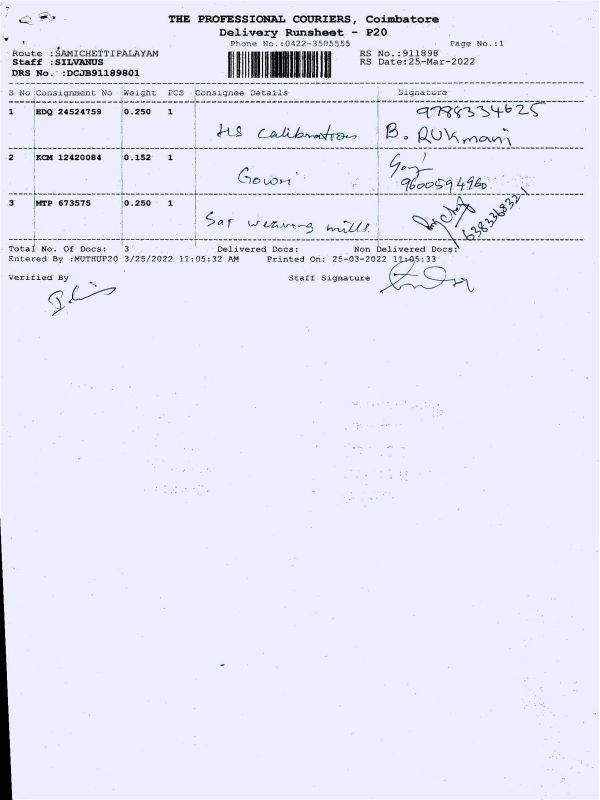 THE PROFESSIONAL COURIERS, Coimbatore
Delivery Runsheet - P20
Phone No.:0422-3505555 Page No.:1
Route :SAMICHETTIPALAYAM RS No.:911898
Staff :SILVANUS RS Date:25-Mar-2022
DRS No. :DCJB91189801
S No Consignment No Weight PCS Consignee Details Signature
1 EDQ 24524759 0.250 1 9788334625
HS Calibration B. RUKmani
2 KCM 12420084 0.152 1
Gowri 9600594960
3 MTP 673575 0.250 1
Sar weaving mills 6383368321
Total No. Of Docs: 3 Delivered Docs: Non Delivered Docs:
Entered By :MUTHUP20 3/25/2022 11:05:32 AM Printed On: 25-03-2022 11:05:33
Verified By Staff Signature